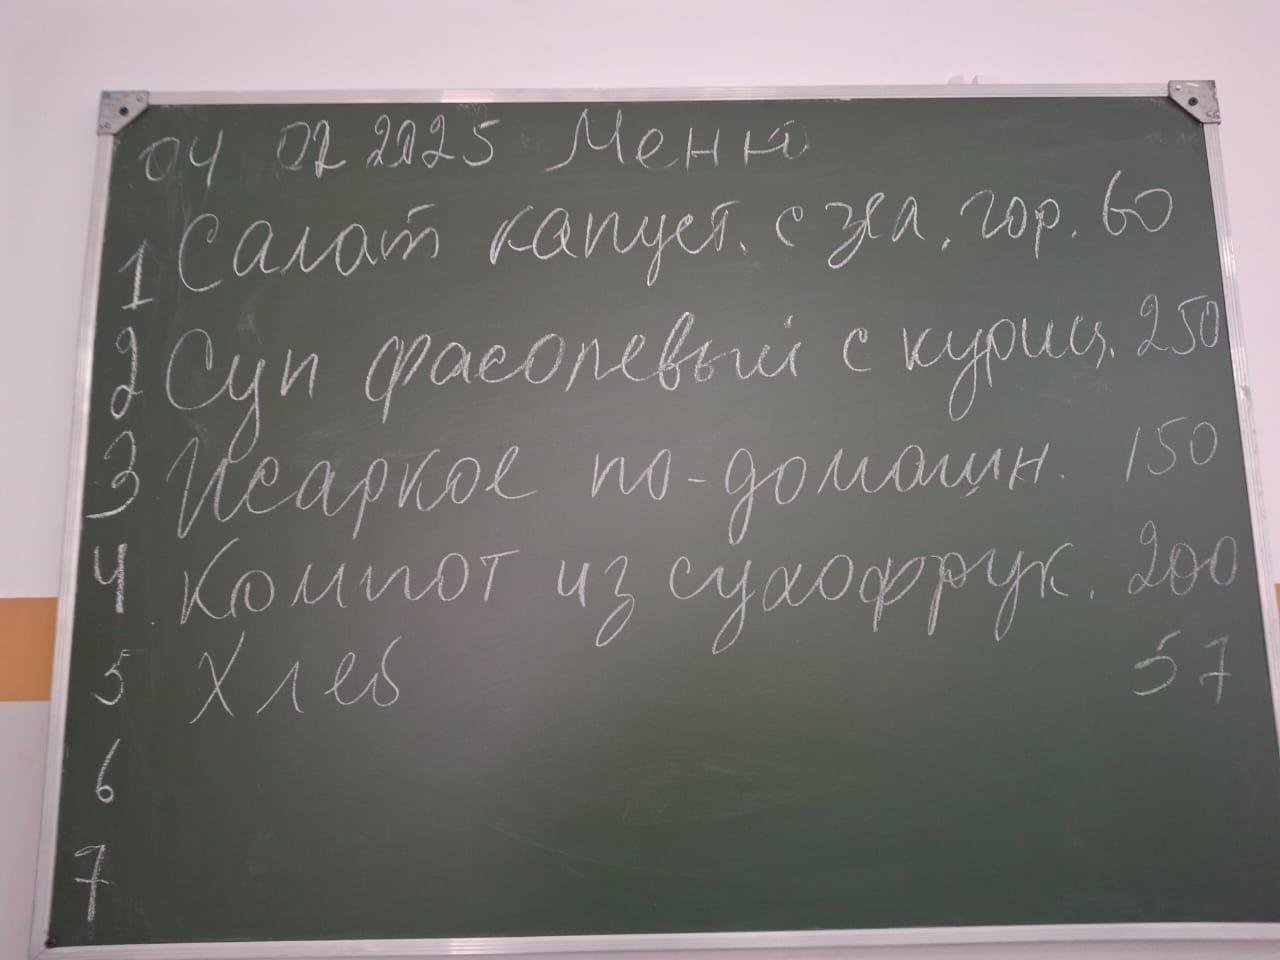 04 02 2025 Меню
1 Салат капуст. с зел. гор. 60
2 Суп фасолевый с куриц. 250
3 Жаркое по-домашн. 150
4 Компот из сухофрук. 200
5 Хлеб 57
6
7